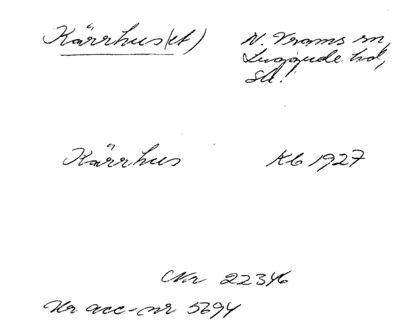 Kärrhus(et)
N. Vrams sn,
Luggude hd,
Sk.
Kärrhus
Kb 1927
Nr 22346
Ur acc-nr 5694